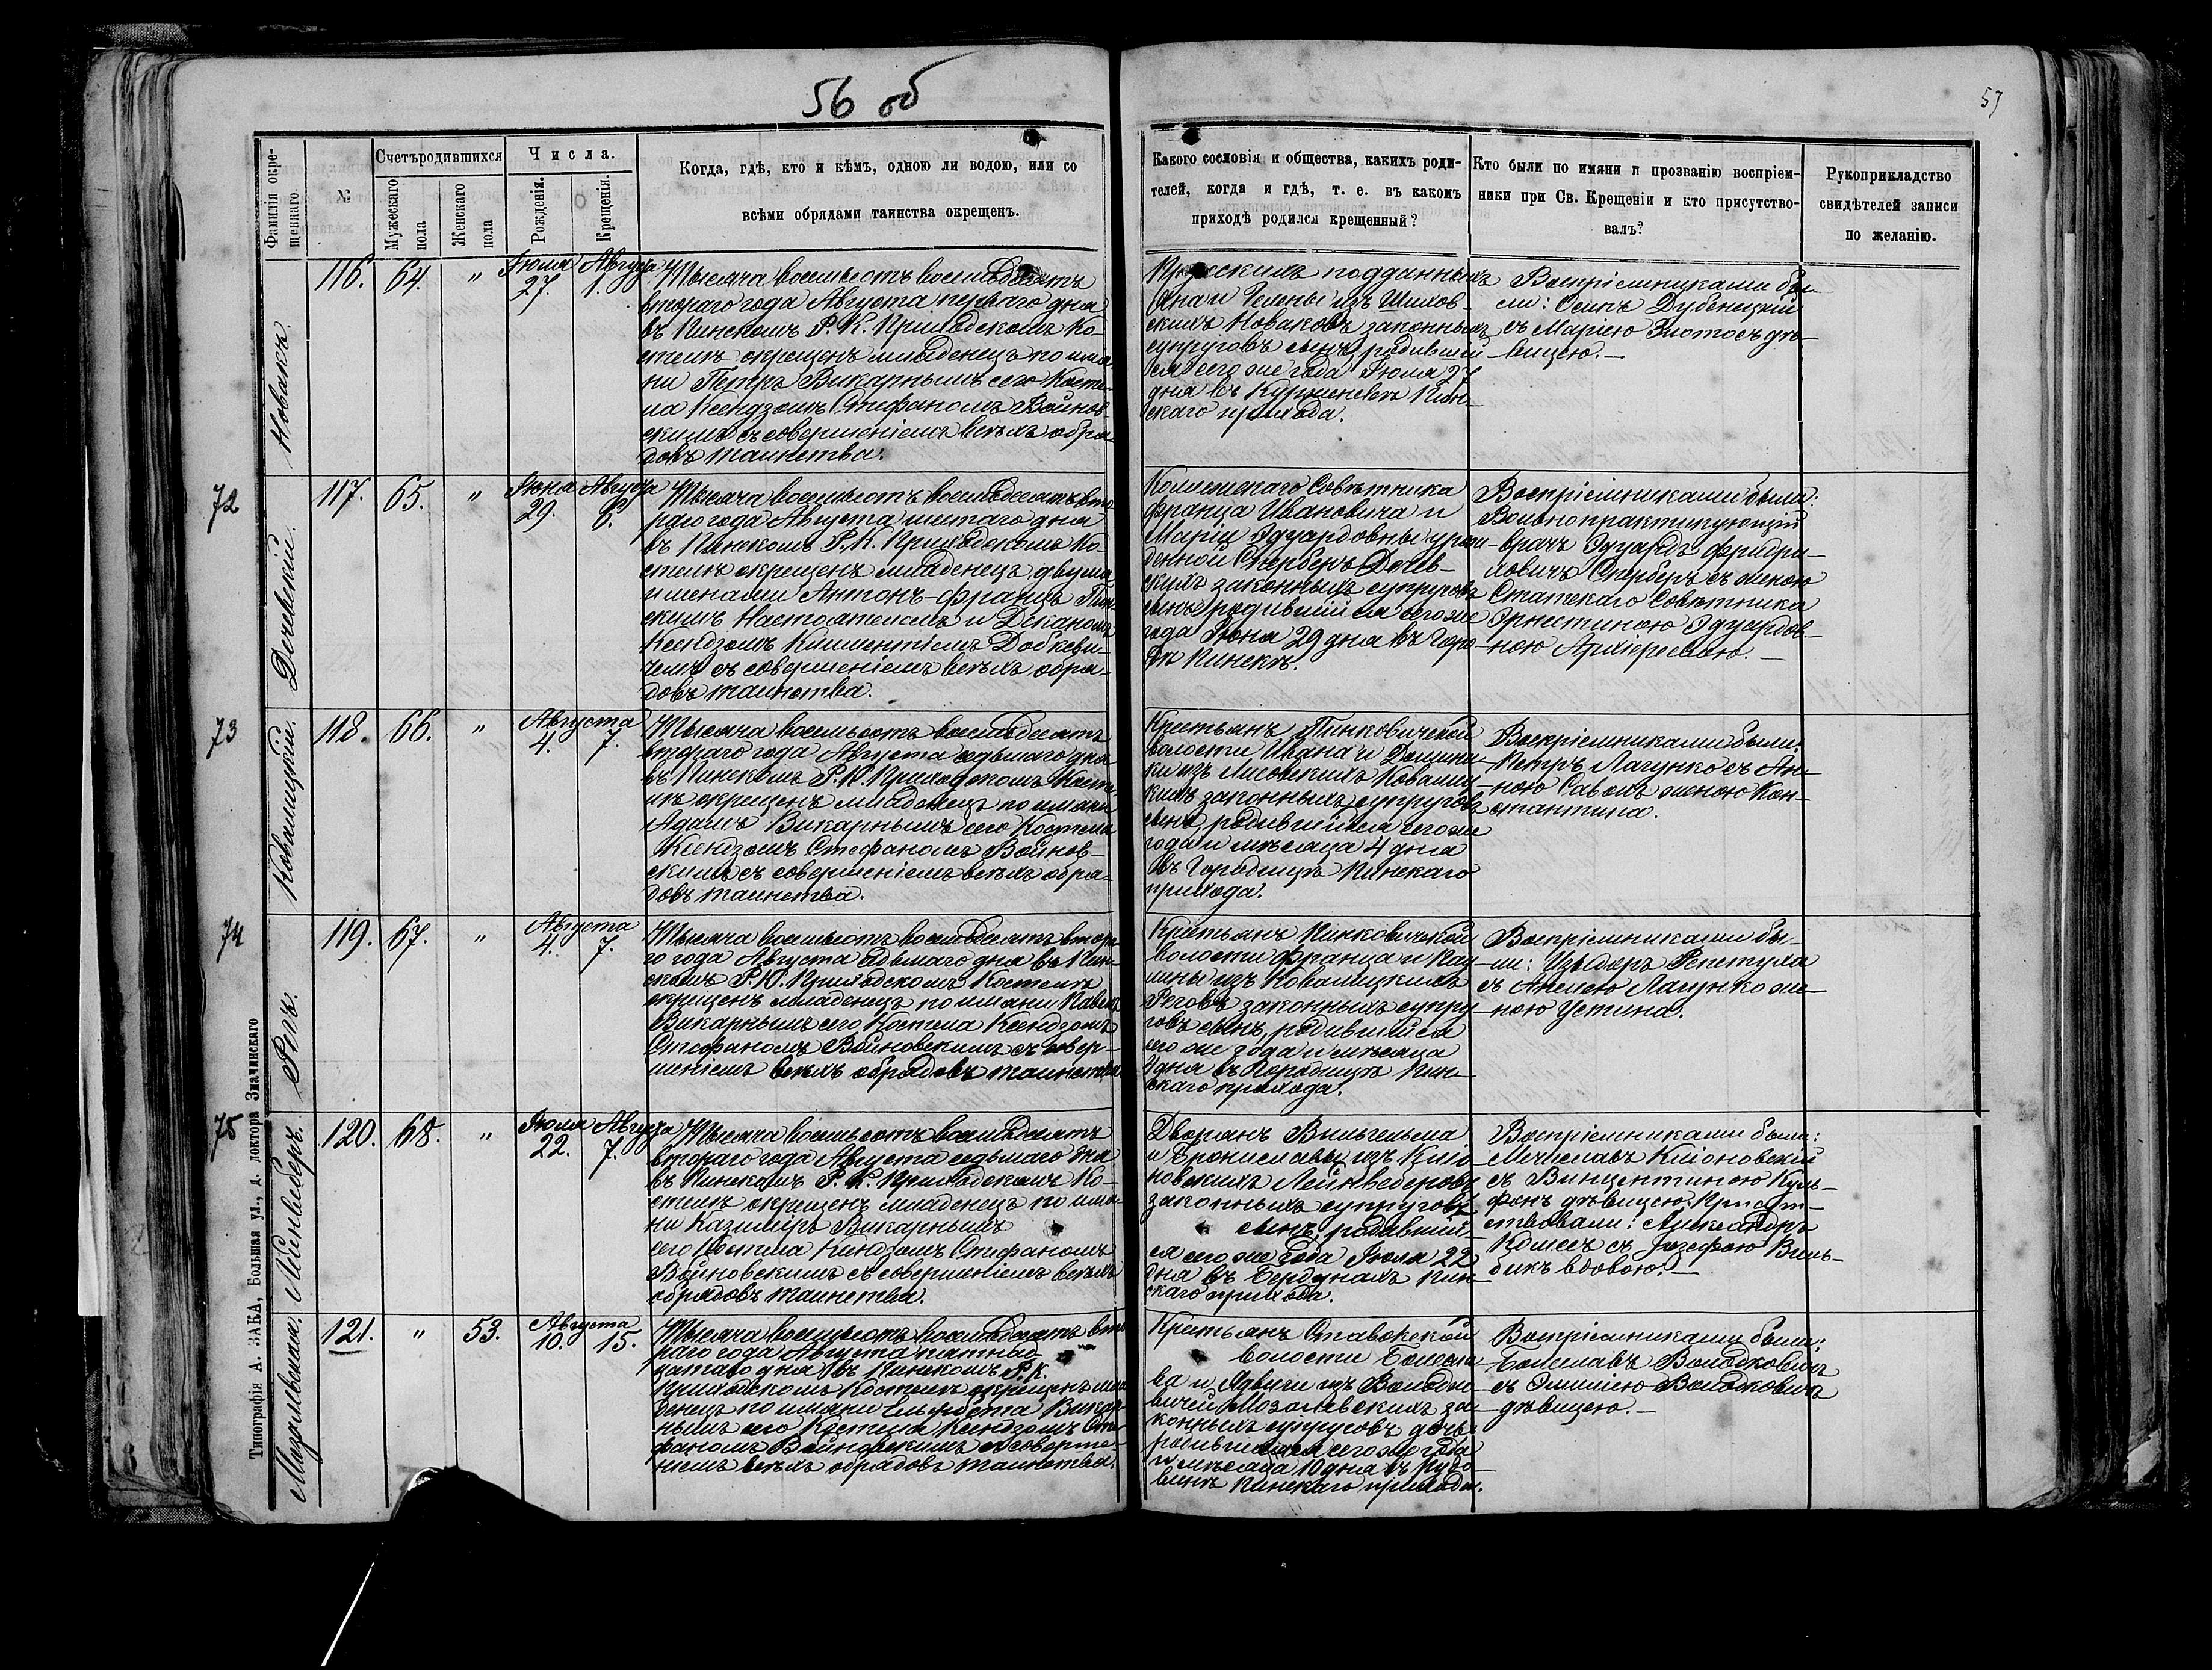 56 об
57
Фамилія окре-
щеннаго.
№
Счетъ родившихся
Мужескаго
пола
Женскаго
пола
Числа.
Рожденія.
Крещенія.
Когда, гдѣ, кто и кѣмъ, одною ли водою, или со
всѣми обрядами таинства окрещенъ.
Какого сословія и общества, какихъ роди-
телей, когда и гдѣ, т. е. въ какомъ
приходѣ родился крещенный?
Кто были по имяни и прозванію воспріем-
ники при Св. Крещеніи и кто присутство-
валъ?
Рукоприкладство
свидѣтелей записи
по желанію.
Новакъ.
116. 64. „ Іюля 27. Августа 1.
Тысяча восемьсотъ восемьдесятъ
втораго года Августа перваго дня
въ Пинскомъ Р. К. Приходскомъ Ко-
стелѣ окрещенъ младенецъ по имя-
ни Петръ Викарнымъ сего Косте-
ла Ксендзомъ Стефаномъ Войнов-
скимъ съ совершеніемъ всѣхъ обря-
довъ таинства.
Прусскихъ подданныхъ
Яна и Гелены изъ Шихов-
скихъ Новаковъ законныхъ
супруговъ сынъ, родившій-
ся сего же года Іюля 27
дня въ Пин-
скаго прихода.
Воспріемниками бы-
ли: Осипъ Дубеницкій
съ Маріею Злотосъ дѣ-
вицею.
72
Дечевскій.
117. 65. „ Іюня 29. Августа 6.
Тысяча восемьсотъ восемьдесятъ вто-
раго года Августа шестаго дня
въ Пинскомъ Р. К. Приходскомъ Ко-
стелѣ окрещенъ младенецъ двумя
именами Антонъ-Францъ Пин-
скимъ Настоятелемъ и Деканомъ
Ксендзомъ Климентіемъ Добкеви-
чемъ съ совершеніемъ всѣхъ обря-
довъ таинства.
Коллежскаго Совѣтника
Франца Ивановича и
Маріи Эдуардовны урож-
денной Сперберъ Дечев-
скихъ законныхъ супруговъ
сынъ, родившійся сего же
года Іюня 29 дня въ горо-
дѣ Пинскѣ.
Воспріемниками были:
Вольнопрактикующій
врачъ Эдуардъ Фридри-
ховичъ Сперберъ съ женою
Статскаго Совѣтника
Эрнестиною Эдуардов-
ною
73
Ковалицкій.
118. 66. „ Августа 4. 7.
Тысяча восемьсотъ восемьдесятъ
втораго года Августа седьмаго дня
въ Пинскомъ Р. К. Приходскомъ Косте-
лѣ окрещенъ младенецъ по имяни
Адамъ Викарнымъ сего Костела
Ксендзомъ Стефаномъ Войнов-
скимъ съ совершеніемъ всѣхъ обря-
довъ таинства.
Крестьянъ Пинковичской
волости Ивана и Домини-
ки изъ Лисовскихъ Ковалиц-
кихъ законныхъ супруговъ
сынъ, родившійся сего же
года и мѣсяца 4 дня
въ Городищѣ Пинскаго
прихода.
Воспріемниками были:
Петръ Лагунко съ Ан-
ною женою Кон-
стантина.
74
Регъ.
119. 67. „ Августа 4. 7.
Тысяча восемьсотъ восемьдесятъ второ-
го года Августа седьмаго дня въ Пин-
скомъ Р. К. Приходскомъ Костелѣ
окрещенъ младенецъ по имяни Павелъ
Викарнымъ сего Костела Ксендзомъ
Стефаномъ Войновскимъ съ совер-
шеніемъ всѣхъ обрядовъ таинства
Крестьянъ Пинковичской
волости Франца и Пау-
лины изъ Ковалицкихъ
Реговъ законныхъ супру-
говъ сынъ, родившійся
сего же года и мѣсяца
4 дня въ Городищѣ Пин-
скаго прихода.
Воспріемниками бы-
ли: Изыдоръ Репетуха
съ Анелею Лагунко же-
ною Устина.
75
Лейнведеръ.
120. 68. „ Іюля 22. Августа 7.
Тысяча восемьсотъ восемьдесятъ
втораго года Августа седьмаго дня
въ Пинскомъ Р. К. Приходскомъ Ко-
стелѣ окрещенъ младенецъ по имя-
ни Казиміръ Викарнымъ
сего Костела Ксендзомъ Стефаномъ
Войновскимъ съ совершеніемъ всѣхъ
обрядовъ таинства.
Дворянъ Вильгельма
и Брониславы изъ Кліо-
новскихъ Лейнведеровъ
законныхъ супруговъ
сынъ, родившій-
ся сего же года Іюля 22
дня въ Пин-
скаго прихода.
Воспріемниками были:
Мечиславъ Кліоновскій
съ Винцентиною Куль-
дѣвицею. Присут-
ствовали: Александръ
съ Іозефою Виль-
вдовою.
Типографія А. ЗАКА, Большая ул., д. доктора Значинскаго
121. „ 53. Августа 10. 15.
Тысяча восемьсотъ восемьдесятъ вто-
раго года Августа пятнад-
цатаго дня въ Пинскомъ Р. К.
Приходскомъ Костелѣ окрещенъ мла-
денецъ по имяни Викар-
нымъ сего Костела Ксендзомъ Сте-
фаномъ Войновскимъ съ соверше-
ніемъ всѣхъ обрядовъ таинства.
Крестьянъ Ставокской
волости Болесла-
ва и Ядвиги изъ Володке-
вичей за-
конныхъ супруговъ дочь,
родившаяся сего же года
и мѣсяца 10 дня въ
Пинскаго прихода.
Воспріемниками были:
Болеславъ Володковичъ
съ Эмиліею Володковичъ
дѣвицею.